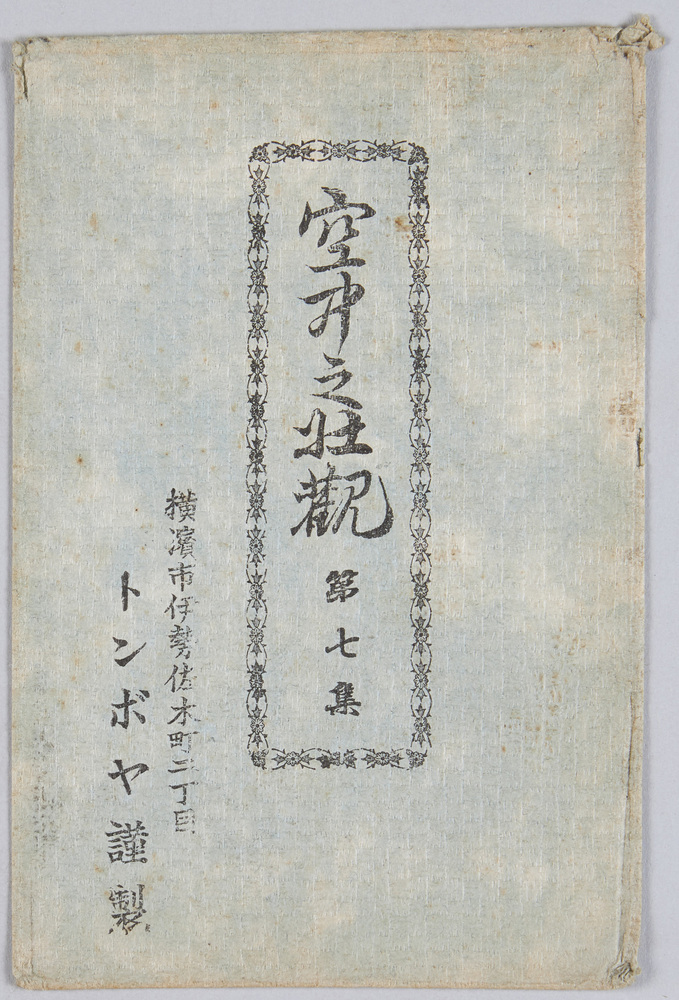 空中之壮觀 第七集
横濱市伊勢佐木町二丁目
トンボヤ謹製